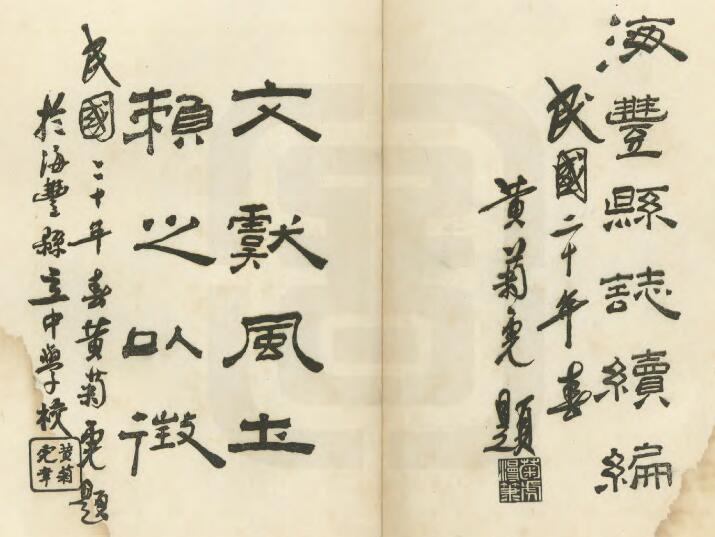 海豐縣誌續編
民國二十年春
黄菊虎題
文獻風土
賴之以徵
民國二十年春黄菊虎題
於海豐縣立中學校